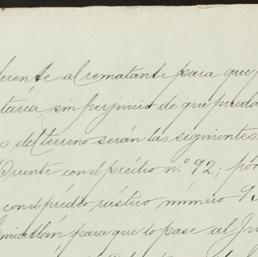 ferente al rematante para que
tarea sin perjuicio de que pueda
s del terreno serán las siguientes
Oriente con el prédio n.º 92; por
con el prédio rústico número 9
para que lo pase al Ju